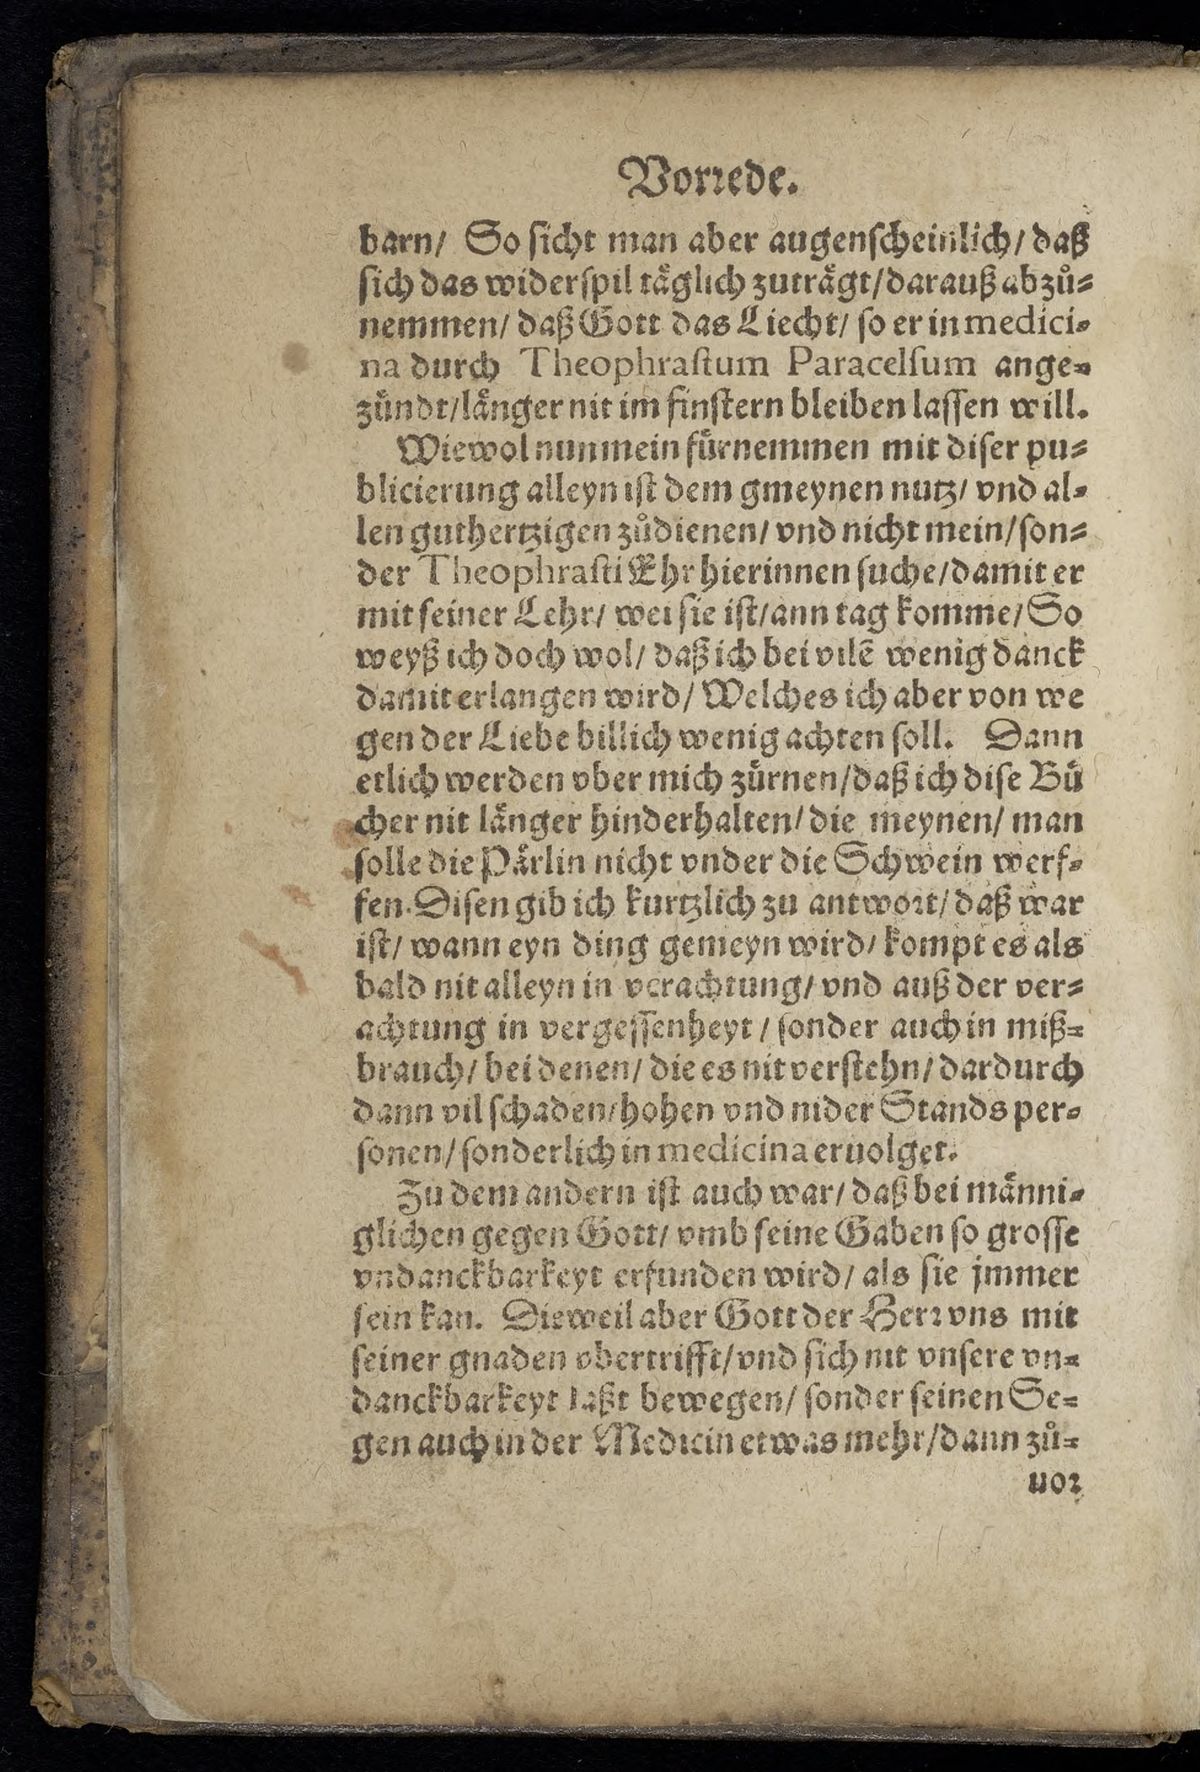 Vorrede.
barn/ So sicht man aber augenscheinlich/ daß
sich das widerspil täglich zuträgt/ darauß abzů-
nemmen/ daß Gott das Liecht/ so er in medici-
na durch Theophrastum Paracelsum ange-
zündt/ länger nit im finstern bleiben lassen will.
Wiewol nun mein fürnemmen mit diser pu-
blicierung alleyn ist dem gmeynen nutz/ vnd al-
len guthertzigen zůdienen/ vnd nicht mein/ son-
der Theophrasti Ehr hierinnen suche/ damit er
mit seiner Lehr/ wei sie ist/ ann tag komme/ So
weyß ich doch wol/ daß ich bei vilē wenig danck
damit erlangen wird/ Welches ich aber von we
gen der Liebe billich wenig achten soll. Dann
etlich werden vber mich zürnen/ daß ich dise Bü
cher nit länger hinderhalten/ die meynen/ man
solle die Pärlin nicht vnder die Schwein werf-
fen. Disen gib ich kurtzlich zu antwort/ daß war
ist/ wann eyn ding gemeyn wird/ kompt es als
bald nit alleyn in verachtung/ vnd auß der ver-
achtung in vergessenheyt/ sonder auch in miß-
brauch/ bei denen/ die es nit verstehn/ dardurch
dann vil schaden/ hohen vnd nider Stands per-
sonen/ sonderlich in medicina eruolget.
Zu dem andern ist auch war/ daß bei männi-
glichen gegen Gott/ vmb seine Gaben so grosse
vndanckbarkeyt erfunden wird/ als sie jmmer
sein kan. Dieweil aber Gott der Herr vns mit
seiner gnaden vbertrifft/ vnd sich nit vnsere vn-
danckbarkeyt laßt bewegen/ sonder seinen Se-
gen auch in der Medicin etwas mehr/ dann zů-
uor